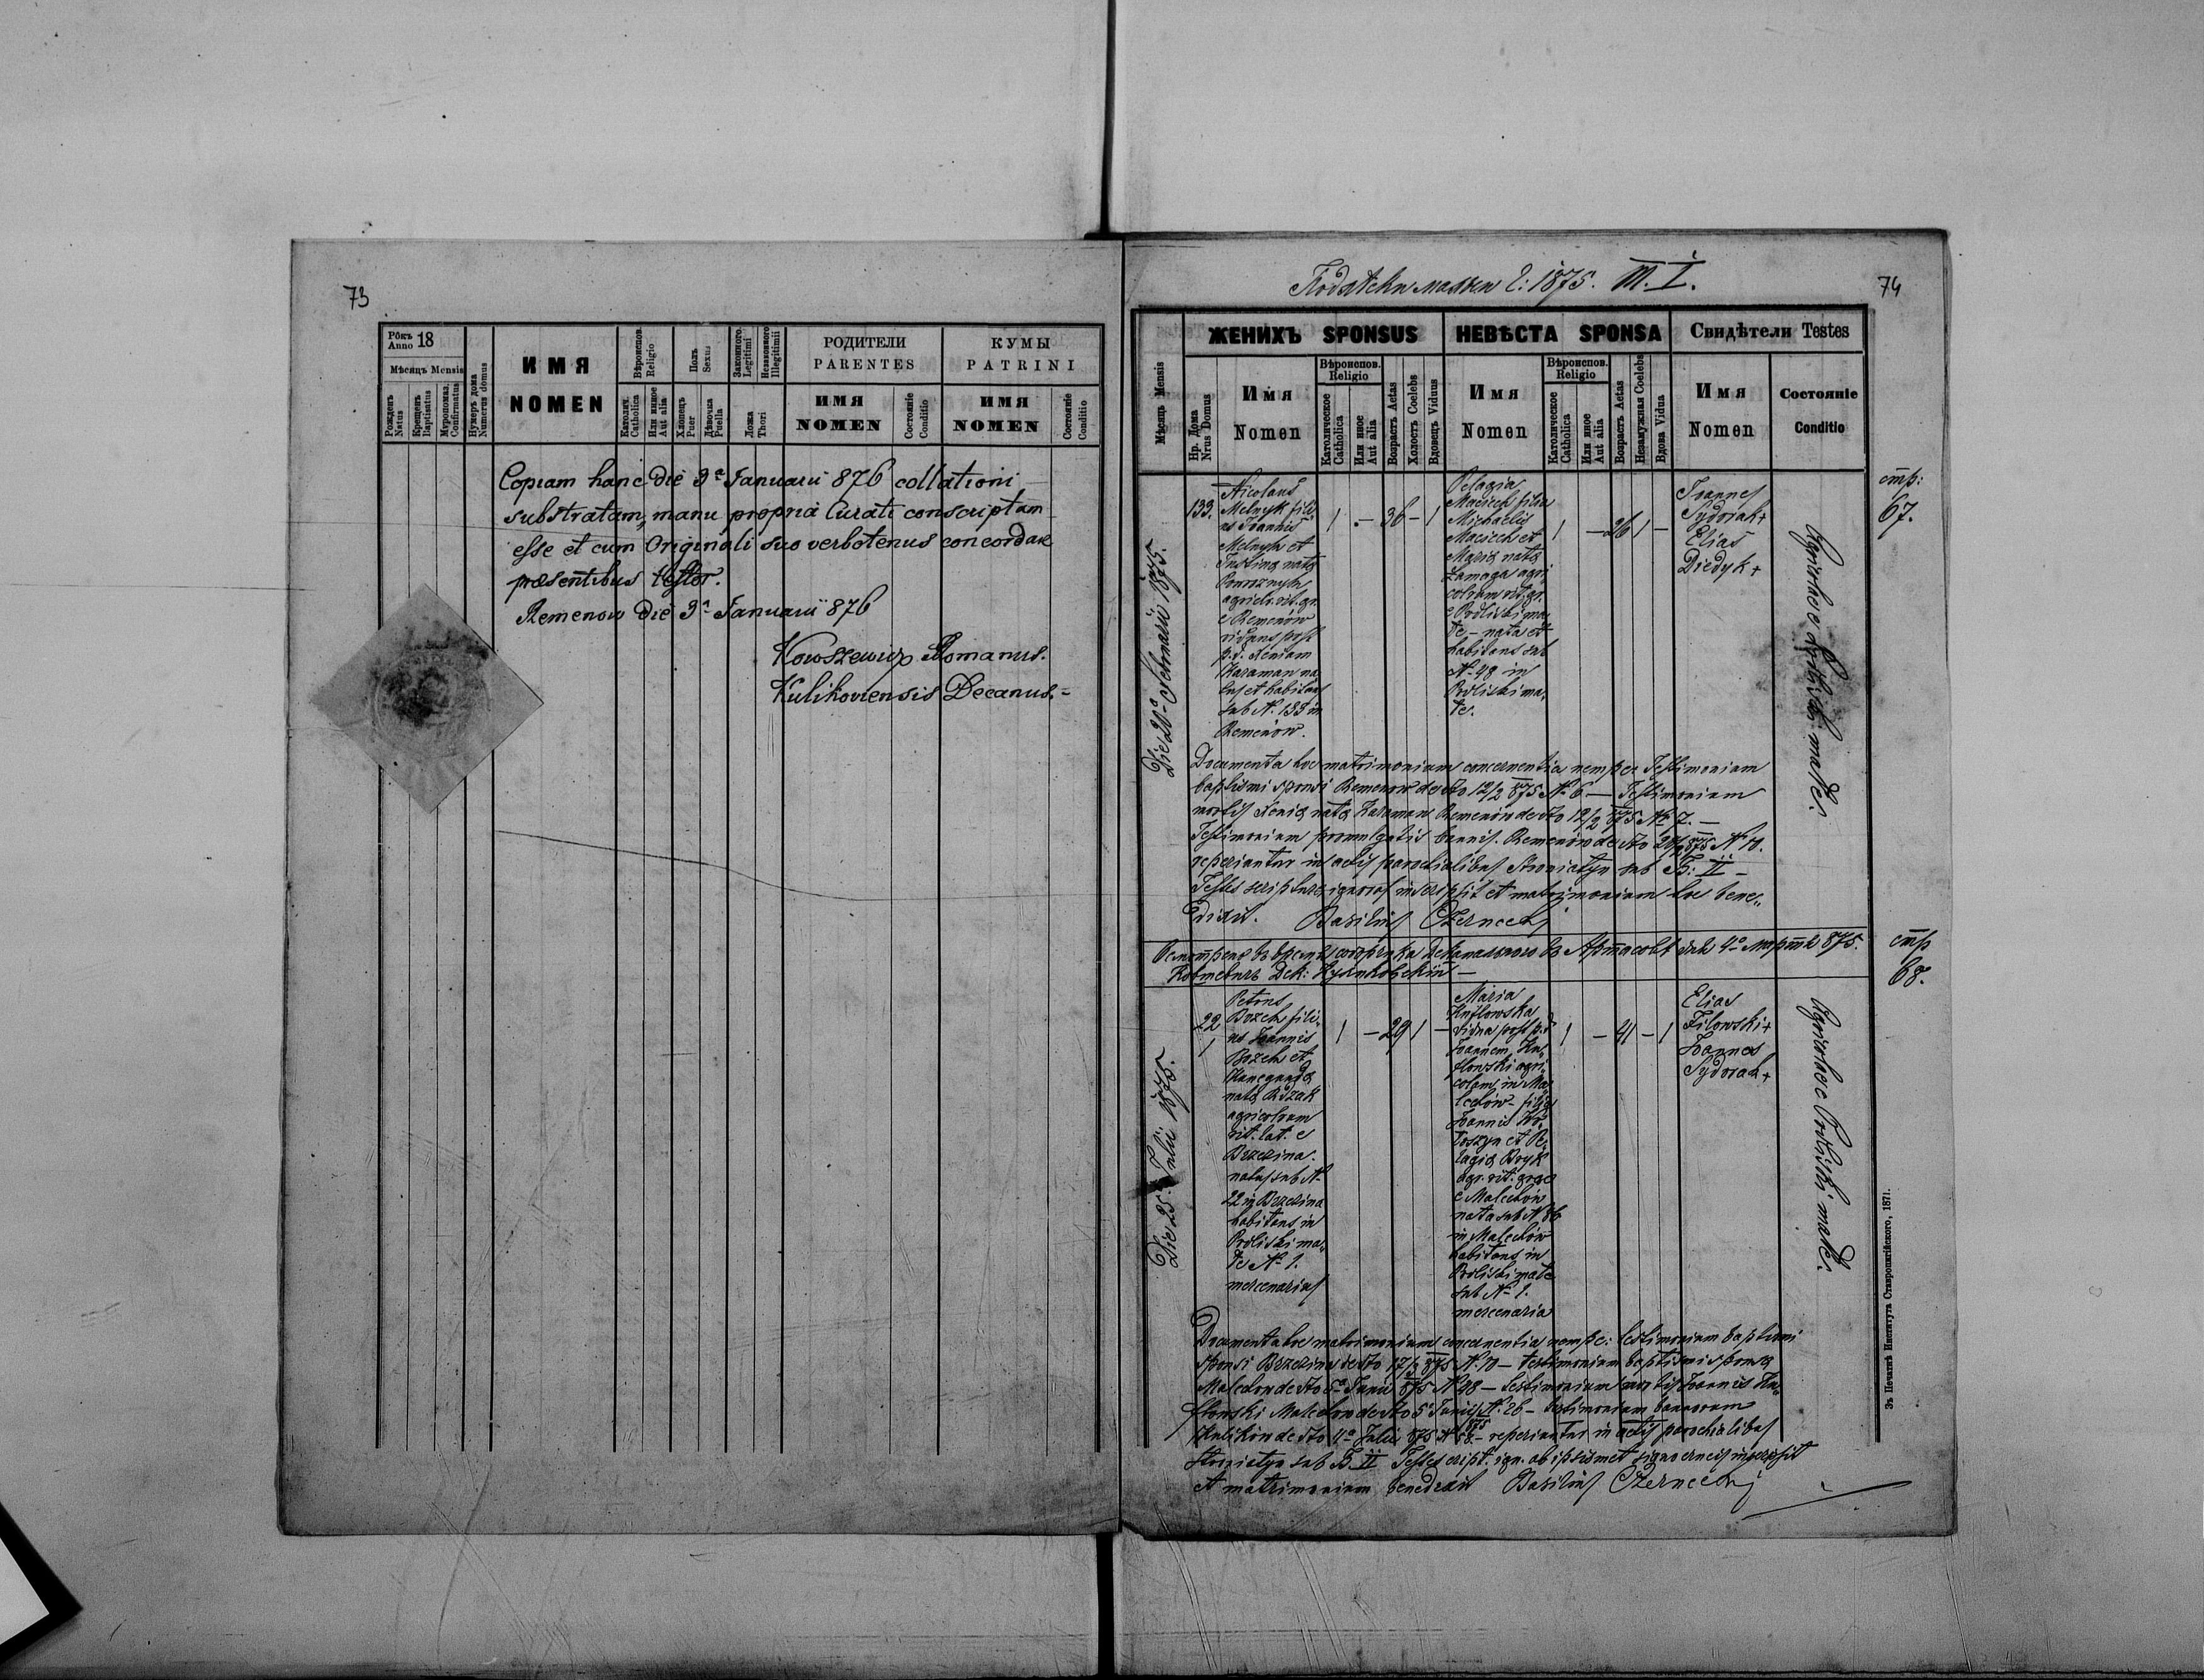 73
Рôкъ 18
Anno
Мѣсяцъ Mensis
Рожденъ Natus
Крещенъ Baptisatus
Муропомаз. Confirmatus
Нумеръ дома Numerus domus
ИМЯ
NOMEN
Вѣроиспов. Religio
Католич. Catholica
Или иное Aut alia
Полъ Sexus
Хлопецъ Puer
Дѣвочка Puella
Законного Legitimi
Незаконного Illegitimi
Ложа Thori
РОДИТЕЛИ
PARENTES
ИМЯ
NOMEN
Состоянiе Conditio
КУМЫ
PATRINI
ИМЯ
NOMEN
Состоянiе Conditio
Copiam hanc die 3ª Januarii 876 collationi
substratam, manu propria Curati conscriptam
esse et cum Originali suo verbotenus concordare
praesentibus testor.
Remenow die 3ª Januarii 876
Romanus.
Kulikoviensis Decanus.=
1875.
74
Мѣсяцъ Mensis
ЖЕНИХЪ SPONSUS
Нр. Дома Nrus Domus
Имя
Nomen
Вѣроиспов.
Religio
Католическое Catholica
Или иное Aut alia
Возрастъ Aetas
Холостъ Coelebs
Вдовецъ Viduus
НЕВѢСТА SPONSA
Имя
Nomen
Вѣроиспов.
Religio
Католическое Catholica
Или иное Aut alia
Возрастъ Aetas
Незамужная Coelebs
Вдова Vidua
Свидѣтели Testes
Имя
Nomen
Состоянiе
Conditio
стр:
67.
Die 20ª Februarii 1875.
133.
Nicolaus
Melnyk fili
us Joannis
Melnyk et
Justina nata
agricol. rit. gr.
e Remenów
viduus post
p. d. Xeniam
Karaman na
tus et habitans
sub N. 133 in
Remenów.
1 - 36 - 1
Pelagia
Maciech filia
Michaelis
Maciech et
Maria nata
Zamaga agri
colarum rit. gr.
e Podliski ma
łe - nata et
habitans sub
N. 48 in
Podliski ma,
łe.
1 - 26 1 -
Joannes
Sydorak +
Elias
Diedyk +
Agricolae e Podliski małe.
Documenta hoc matrimonium concernentia nempe Testimonium
baptismi sponsi Remenow de dto 12/2 875 N. 6 — Testimonium
mortis Xenia nata Karaman Remenów de dto 12/2 875 N. 7. —
Testimonium promulgatis bannis Remenów de dto 20/2 875 N 10.
reperiuntur in actis parochialibus Stronietyn sub B: II —
Testes scripturae ignaros inscripsit et matrimonium hoc bene,,
dixit. Basilius Czernecky
стр
68.
Die 25. Julii 1875.
22
1
Petrus
Bozek fili,
us Joannis
Bozek et
Kunegunda
nata
agricolarum
rit. lat. e
Brzezina.
natus sub N.
22 in Brzezina
habitans in
Podliski ma,
łe N. 1.
mercenarius
1 - 29 1 -
Maria
vidua post p. d
Joannem
agri,
colam in Ma
lechów - filia
Joannis
et Pe,
lagia
agr. rit. graec
e Malechów
nata sub N 86
in Malechów
habitans in
Podliski małe
sub N. 1.
mercenaria
1 - 41 - 1
Elias
Filowski +
Joannes
Sydorak +
Agricolae e Podliski małe.
Documenta hoc matrimonium concernentia nempe: testimonium baptismi
sponsi Brzezina de dto N. 10 — testimonium baptismi sponsa
Malechow de dto 5ª Junii 875 N 48 — testimonium mortis Joannis
Malechow de dto 5 Junii 875 N. 26 — testimonium bannorum
Kulików de dto Julii 875 N 58 — reperiuntur in actis parochialibus
Stronietyn sub B. II Testes script. ign. ab ipsismet signo crucis inscripsit
et matrimonium benedixit Basilius Czernecky
Зъ Печатнѣ Института Ставропигiйского, 1871.